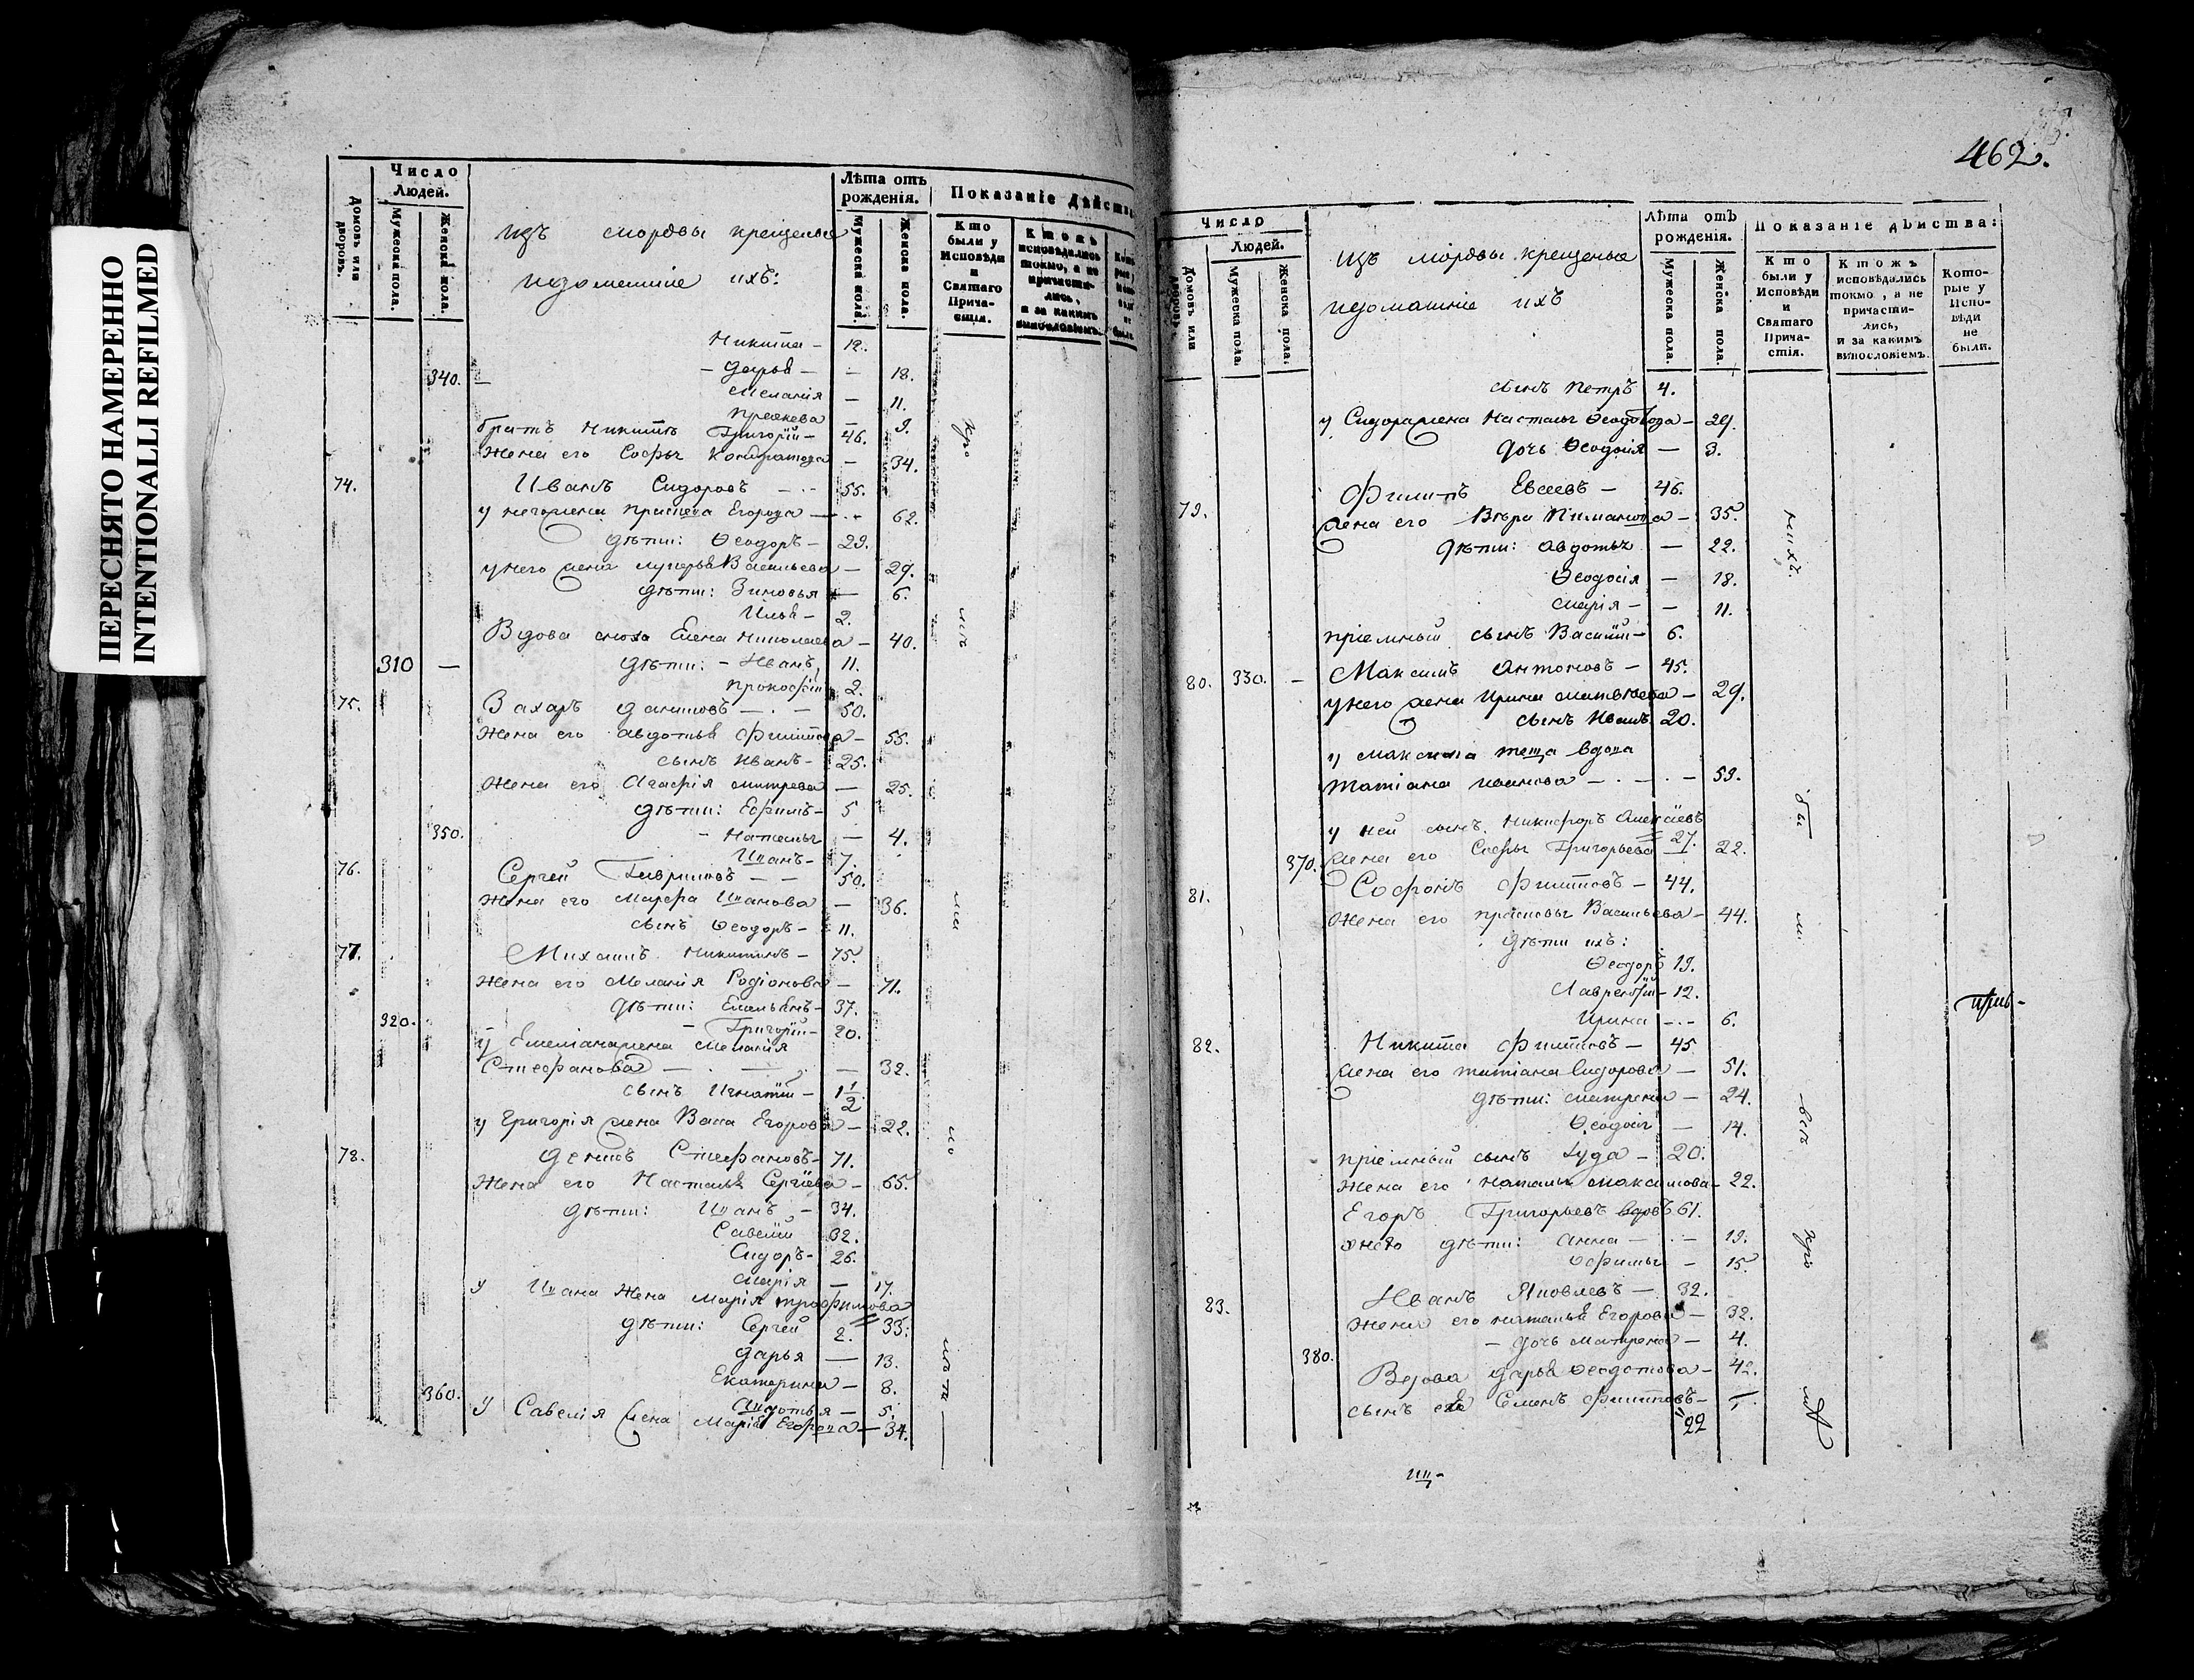 ПЕРЕСНЯТО НАМЕРЕННО
INTENTIONALLI REFILMED
Число
Людей.
Домовъ или дворовъ.
Мужеска пола.
Женска пола.
изъ мордвы крещеные
и домашніе ихъ:
Лѣта отъ рожденія.
Мужеска пола.
Женска пола.
Показаніе дѣйств
Кто были у Исповѣди и Святаго Причастія.
Кто жъ исповѣдались токмо, а не причастились, и за какимъ винословіемъ.
Никита — 12.
340. — Дарья — 18.
Меланія — 11.
9.
братъ Никиты Григорій — 46.
Жена его Софья Кондратова — 34.
74. Иванъ Сидоровъ — 55.
у него жена Праскева Егорова — 62.
дѣти: Ѳеодоръ — 29.
у него жена Лукерья Васильева — 29.
дѣти: Зиновья — 6.
Илья — 2.
Вдова сноха Елена Николаева — 40.
310 — дѣти: — Иванъ, 11.
Прокофій 2.
75. Захаръ Даниловъ — 50.
Жена его Авдотья Филипова — 55.
сынъ Иванъ — 25.
Жена его Агафія Митрева — 25.
дѣти: Ефимъ — 5
350. — Наталья — 4.
Иванъ — 7.
76. Сергей Гавриловъ — 50.
Жена его Марфа Иванова — 36.
сынъ Ѳеодоръ — 11.
77. Михаилъ Никитинъ — 75.
Жена его Меланія Родіонова — 71.
дѣти: Емельянъ — 37.
320. — Григорій — 20.
у Емеліана жена Меланія
Стефанова — 32.
сынъ Игнатій — 1 1/2
у Григорія жена Васа Егорова — 22.
78. Денисъ Стефановъ — 71.
Жена его Насталья Сергіева — 65.
дѣти: Иванъ — 34.
Савелій 32.
Сидоръ — 26.
Марія — 17.
у Ивана Жена Марія Трофимова
33.
дѣти: Сергей 2.
Дарья — 13.
Екатерина — 8.
360. Авдотья — 5.
у Савелія жена Марія Егорова — 34.
462.
Число
Людей.
Домовъ или дворовъ.
Мужеска пола.
Женска пола.
изъ мордвы крещеные
и домашніе ихъ
Лѣта отъ рожденія.
Мужеска пола.
Женска пола.
Показаніе дѣйства:
Кто были у Исповѣди и Святаго Причастія.
Кто жъ исповѣдались токмо, а не причастились, и за какимъ винословіемъ.
Которые у Исповѣди не были.
сынъ Петръ 4.
у Сидора жена Насталья — 29.
дочь Ѳеодосія — 3.
79. Филипъ Евсеевъ — 46.
жена его Вѣра Пиманова — 35.
дѣти: Авдотья — 22.
Ѳеодосія — 18.
Марія — 11.
пріемный сынъ Василій — 6.
80. 330. — Максимъ Антоновъ — 45.
у него жена Ирина Матвѣева — 29.
сынъ Иванъ 20.
у Максима теща вдова
Татіана Иванова — 59.
у ней сынъ Никифоръ Алексіевъ
27.
370. Жена его Софья Григорьева — 22.
81. Софонъ Филиповъ — 44.
Жена его Прасковья Васильева — 44.
дѣти ихъ:
Ѳеодоръ 19.
Лаврентій — 12.
Ирина — 6.
82. Никита Филиповъ — 45
Жена его Татіана Сидорова — 51.
дѣти: Матрена — 24.
Ѳеодосія — 14.
пріемный сынъ Іуда — 20.
Жена его Наталья Максимова — 22.
Егоръ Григорьевъ вдовъ 61.
у него дѣти: Анна — 19.
Офимья — 15.
83. Иванъ Яковлевъ — 32.
Жена его Наталья Егорова — 32.
— дочь Матрена — 4.
380. Вдова Дарья Ѳеодотова — 42.
сынъ ея Семенъ Филиповъ —
22